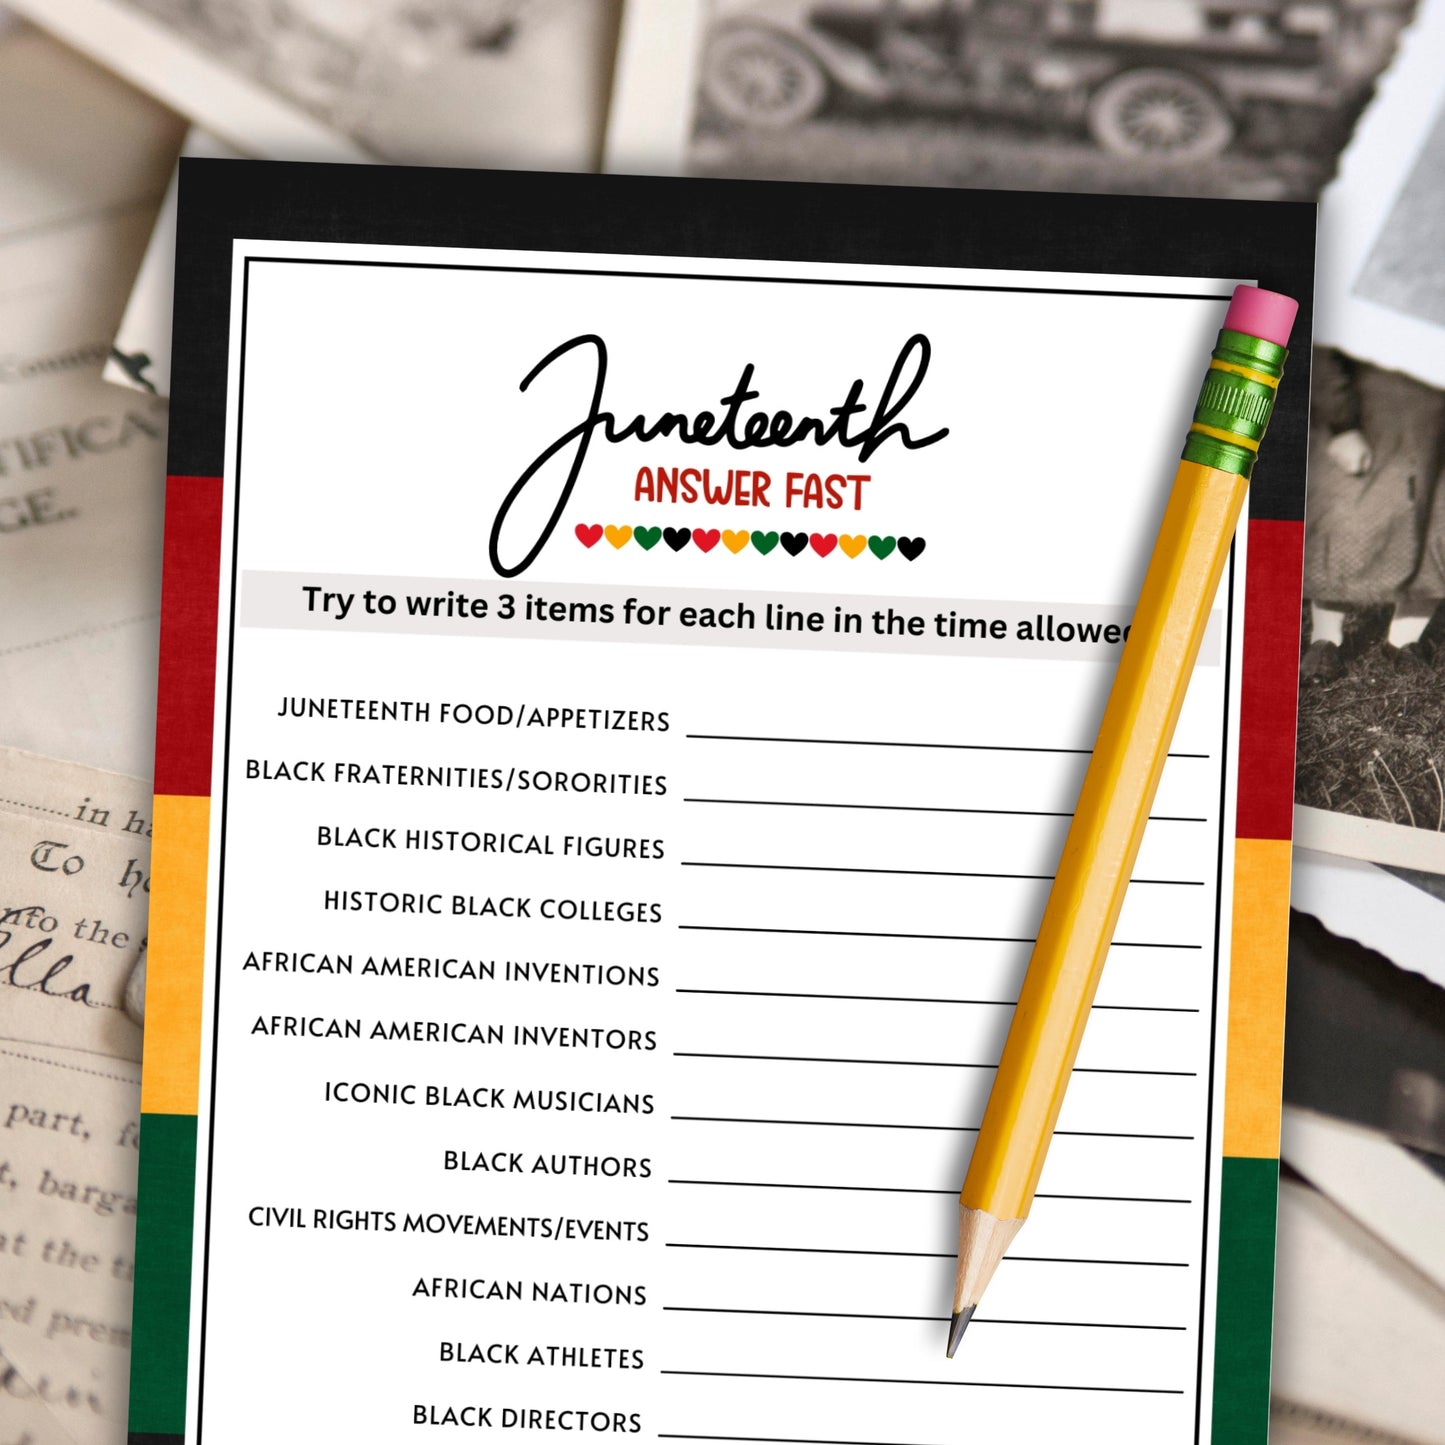 Juneteenth
ANSWER FAST
Try to write 3 items for each line in the time allowed
JUNETEENTH FOOD/APPETIZERS
BLACK FRATERNITIES/SORORITIES
BLACK HISTORICAL FIGURES
HISTORIC BLACK COLLEGES
AFRICAN AMERICAN INVENTIONS
AFRICAN AMERICAN INVENTORS
ICONIC BLACK MUSICIANS
BLACK AUTHORS
CIVIL RIGHTS MOVEMENTS/EVENTS
AFRICAN NATIONS
BLACK ATHLETES
BLACK DIRECTORS
GE.
in
To
the
part,
at the